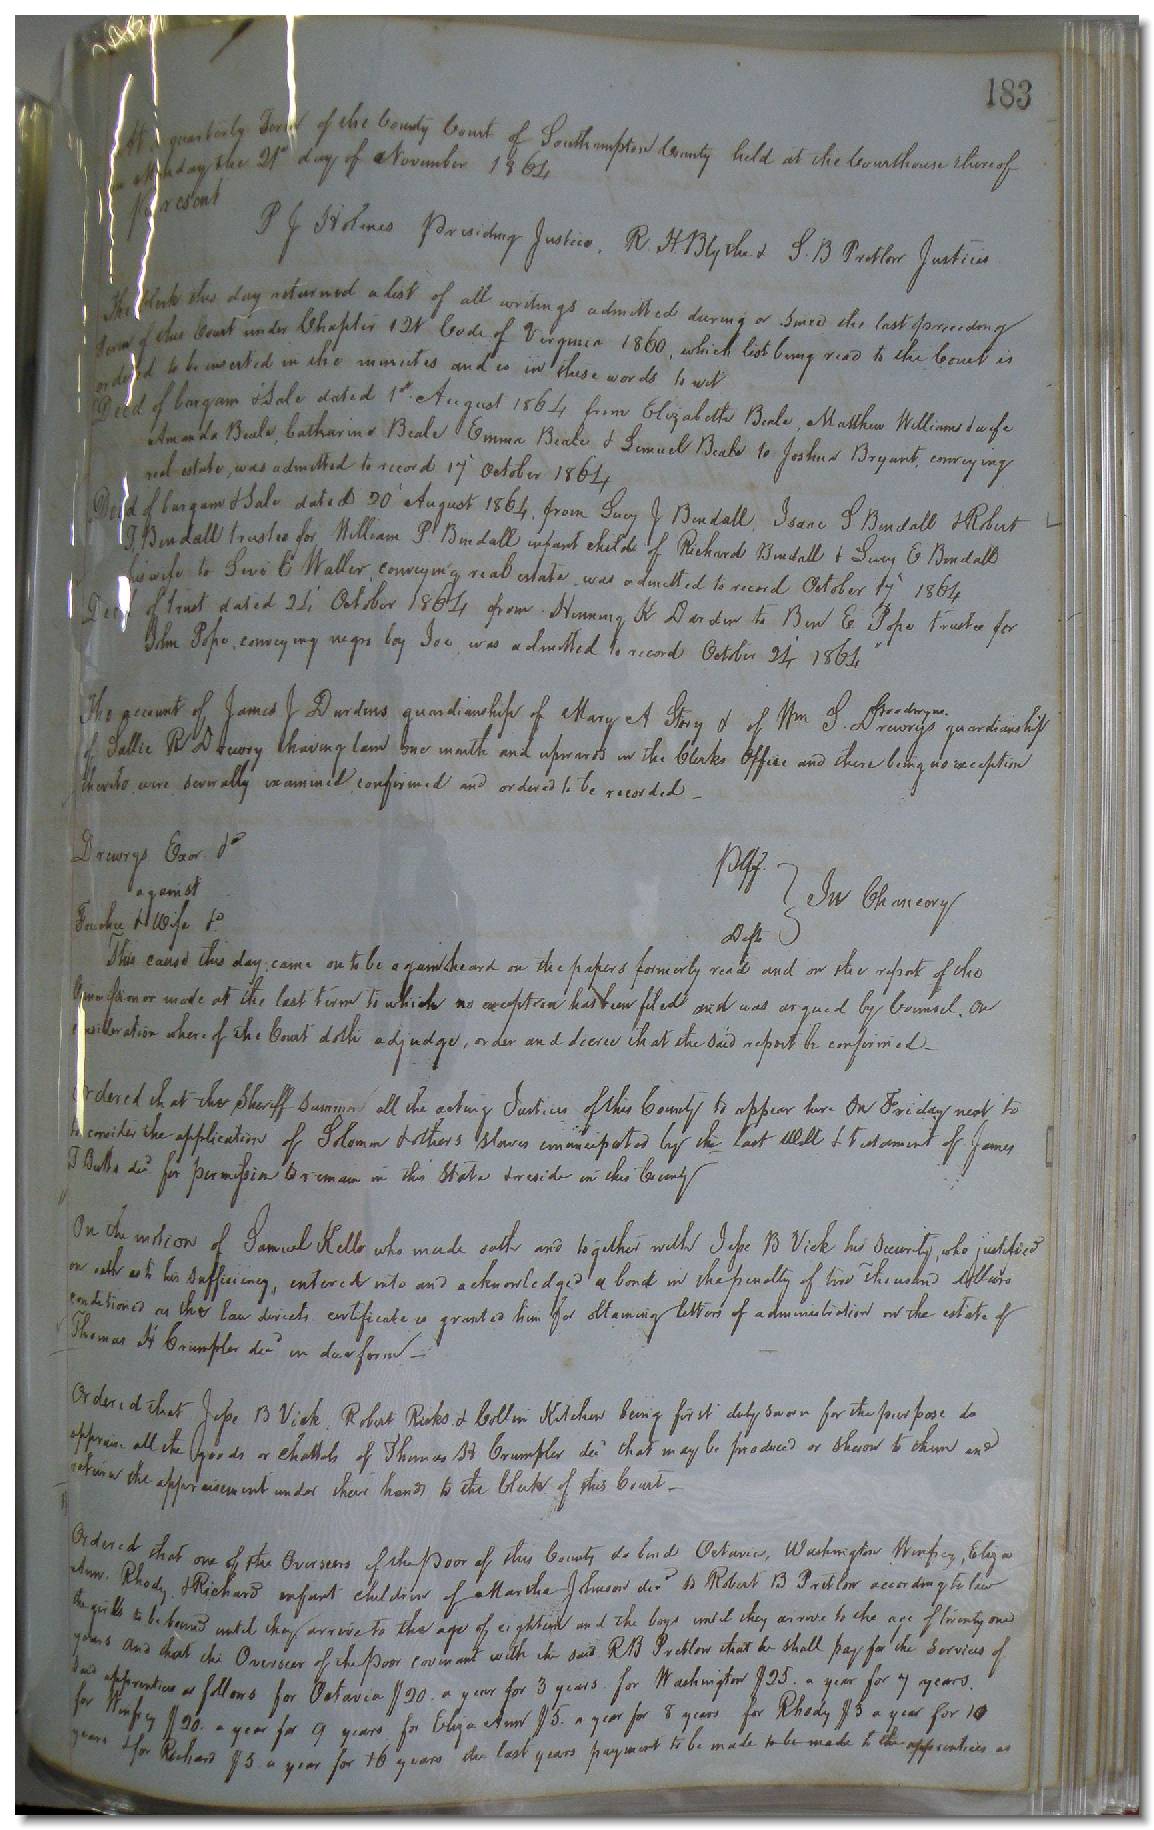 183
At a quarterly Term of the County Court of Southampton County held at the Courthouse thereof
on Monday the 21st day of November 1864
Present
P J Holmes Presiding Justice, R. H Blythe & S. B Pretlow Justices
The Clerk this day returned a list of all writings admitted during or since the last preceeding
term of this Court under Chapter 121 Code of Virginia 1860, which list being read to the Court is
ordered to be inserted in the minutes and is in these words to wit
Deed of bargain & Sale dated 1st August 1864 from Elizabeth Beale, Matthew Williams & wife
Amanda Beale, Catharine Beale Emma Beale & Lemuel Beale to Joshua Bryant, conveying
real estate, was admitted to record 17 October 1864
Deed of bargain & Sale dated 20 August 1864, from Lucy J Bendall, Isaac S Bendall & Robert
T. Bendall trustee for William P Bendall infant child of Richard Bendall & Lucy E Bendall
his wife to Levi E Waller, conveying real estate was admitted to record October 17 1864
Deed of trust dated 24 October 1864 from Henning K Darden to Ben E Pope trustee for
John Pope, conveying negro boy Joe, was admitted to record October 24 1864
The account of James J Dardens guardianship of Mary A Story & of Wm S. Goodwyns Drewrys guardianship
of Sallie R Drewry having lain one month and upwards in the Clerks Office and there being no exception
thereto were severally examined confirmed and ordered to be recorded
Drewrys Exor &c Plff.
against In Chancery
& Wife &c Defts
This cause this day came on to be again heard on the papers formerly read and on the report of the
Commissioner made at the last term to which no exception has been filed and was argued by Counsel. On
consideration whereof the Court doth adjudge, order and decree that the said report be confirmed
Ordered that the Sheriff summon all the acting Justices of this County to appear here on Friday next to
to consider the application of Solomon & others slaves emancipated by the last will & testament of James
T Butts decd for permission to remain in this State & reside in this County
On the motion of Samuel Kello who made oath and together with Jesse B Vick his security, who justified
on oath as to his sufficiency, entered into and acknowledged a bond in the penalty of two Thousand dollars
conditioned as the law directs certificate is granted him for obtaining letters of administration on the estate of
Thomas H Crumpler decd in due form
Ordered that Jesse B Vick, Robert Ricks & Collin Kitchen being first duly sworn for the purpose do
appraise all the goods or chattels of Thomas H Crumpler decd that may be produced or shewn to them and
return the appraisement under their hands to the Clerk of this Court
Ordered that one of the Overseers of the poor of this County do bind Octavia, Washington Winfrey, Eliza
Ann, Rhody & Richard infant children of Martha Johnson decd to Robert B Pretlow according to law
the girls to be bound until they arrive to the age of eighteen and the boys until they arrive to the age of twenty one
years and that the Overseer of the poor covenant with the said RB Pretlow that he shall pay for the services of
said apprentices as follows for Octavia $20. a year for 3 years for Washington $25. a year for 7 years,
for Winfrey $20. a year for 9 years for Eliza Ann $5. a year for 8 years for Rhody $5 a year for 10
years & for Richard $5 a year for 16 years the last years payment to be made to be made to the apprentices as